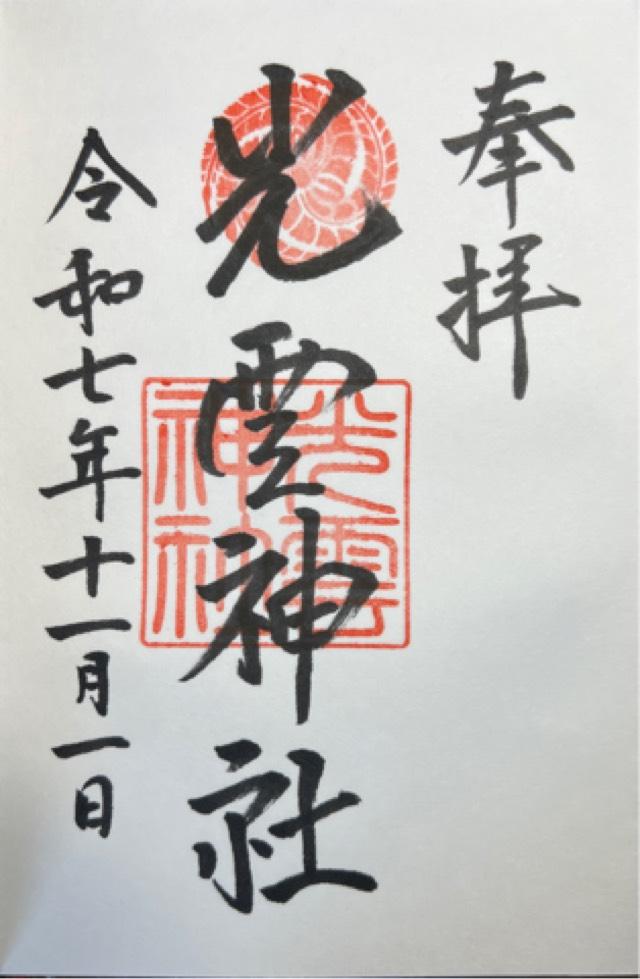 奉拝
光雲神社
光雲神社
令和七年十一月一日